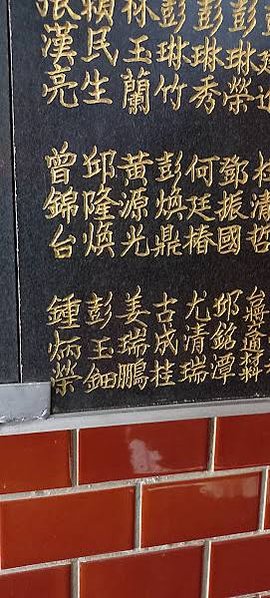 彭琳榮
彭琳秀
彭琳竹
林玉蘭
賴民生
張漢亮
清哲
鄧振國
何廷椿
彭煥鼎
黃源光
邱隆煥
曾錦台
邱銘潭
尤清瑞
古成桂
姜瑞鵬
彭玉鈿
鍾炳榮